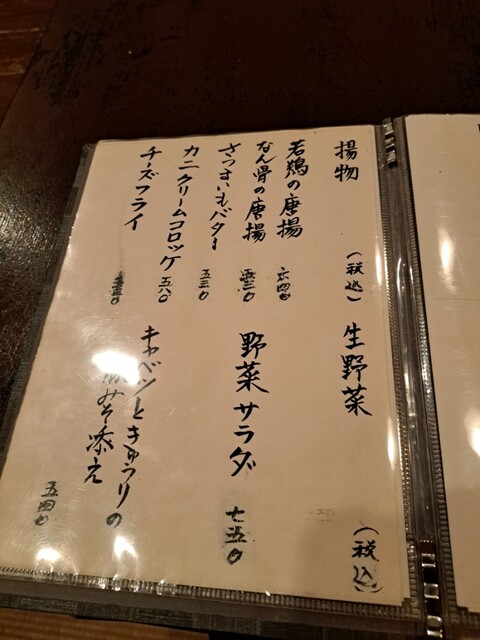 揚物 (税込)
若鶏の唐揚 六四〇
なん骨の唐揚
さつまいもバター 五三〇
カニクリームコロッケ 五八〇
チーズフライ
生野菜 (税込)
野菜サラダ 七五〇
キャベツときゅうりの
みそ添え 五四〇